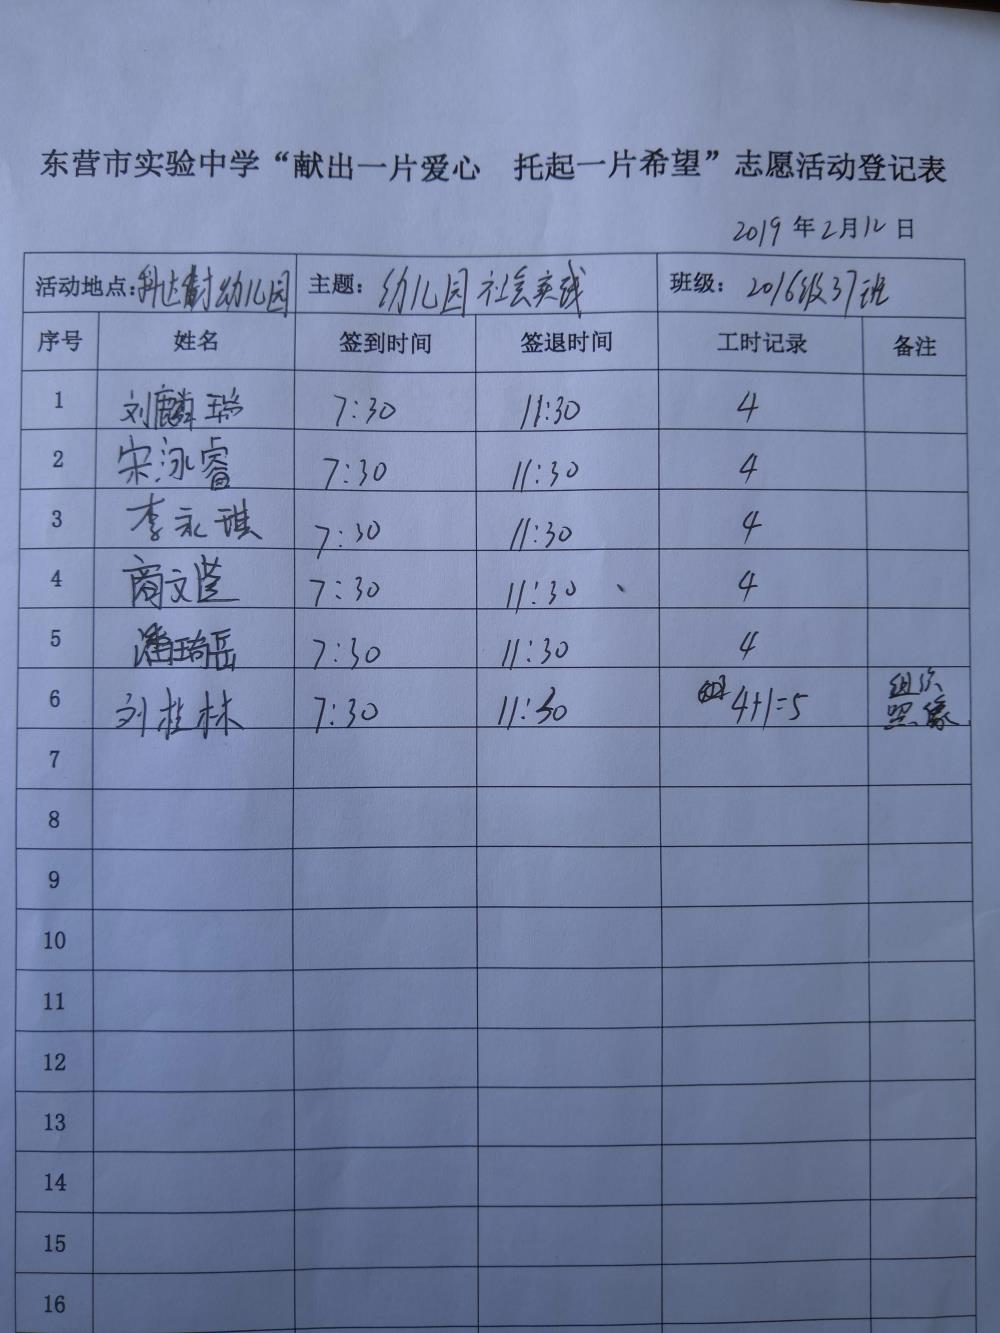 东营市实验中学“献出一片爱心 托起一片希望”志愿活动登记表
2019 年 2 月 12 日
活动地点：科达 幼儿园 主题：幼儿园社会实践 班级：2016级37班
序号 姓名 签到时间 签退时间 工时记录 备注
1 刘麟瑞 7:30 11:30 4
2 宋泳睿 7:30 11:30 4
3 李永琪 7:30 11:30 4
4 商文 7:30 11:30 4
5 潘琦岳 7:30 11:30 4
6 刘桂林 7:30 11:30 4+1=5 组织 照像
7
8
9
10
11
12
13
14
15
16